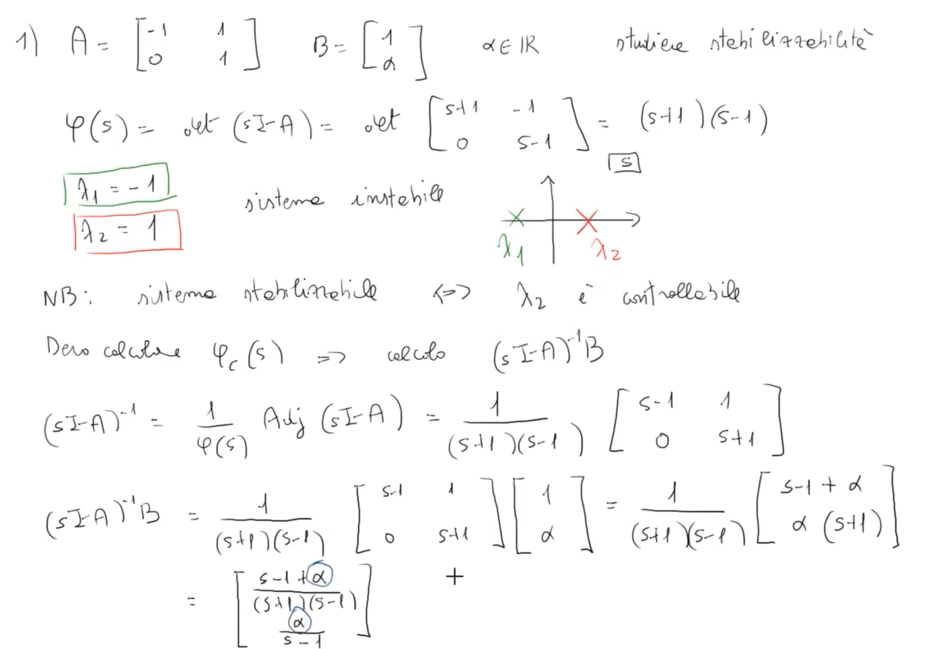 1) A = [-1 1; 0 1] B = [1; α] α ∈ ℝ studiare stabilizzabilità
φ(s) = det (sI-A) = det [s+1 -1; 0 s-1] = (s+1)(s-1)
s
λ₁ = -1
sistema instabile
λ₂ = 1
λ₁ λ₂
NB: sistema stabilizzabile <=> λ₂ è controllabile
Devo calcolare φc(s) => calcolo (sI-A)⁻¹B
(sI-A)⁻¹ = 1/φ(s) Adj (sI-A) = 1/((s+1)(s-1)) [s-1 1; 0 s+1]
(sI-A)⁻¹B = 1/((s+1)(s-1)) [s-1 1; 0 s+1] [1; α] = 1/((s+1)(s-1)) [s-1+α; α (s+1)]
= [(s-1+α)/((s+1)(s-1)); α/(s-1)]